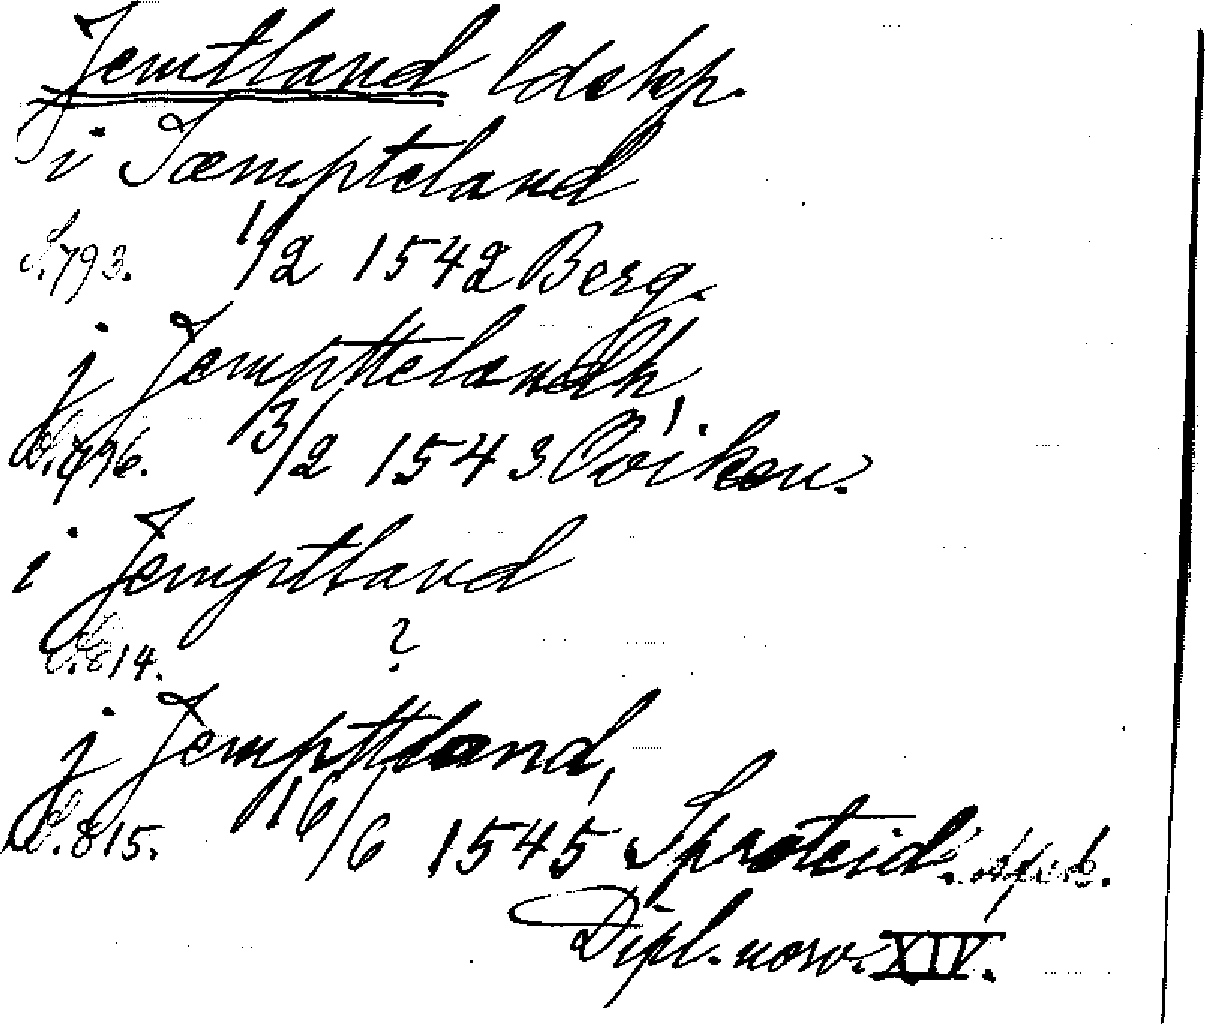 Jemtland ldskp.
i Jæmpteland
S. 793. 1/2 1542 Berg.
j Jempttelandh,
S. 796. 13/2 1543 Oviken.
i Jemptland
S. 814. ?
j Jempttland,
S. 815. 16/6 1545 Sproteid.
Dipl. norv. XIV.